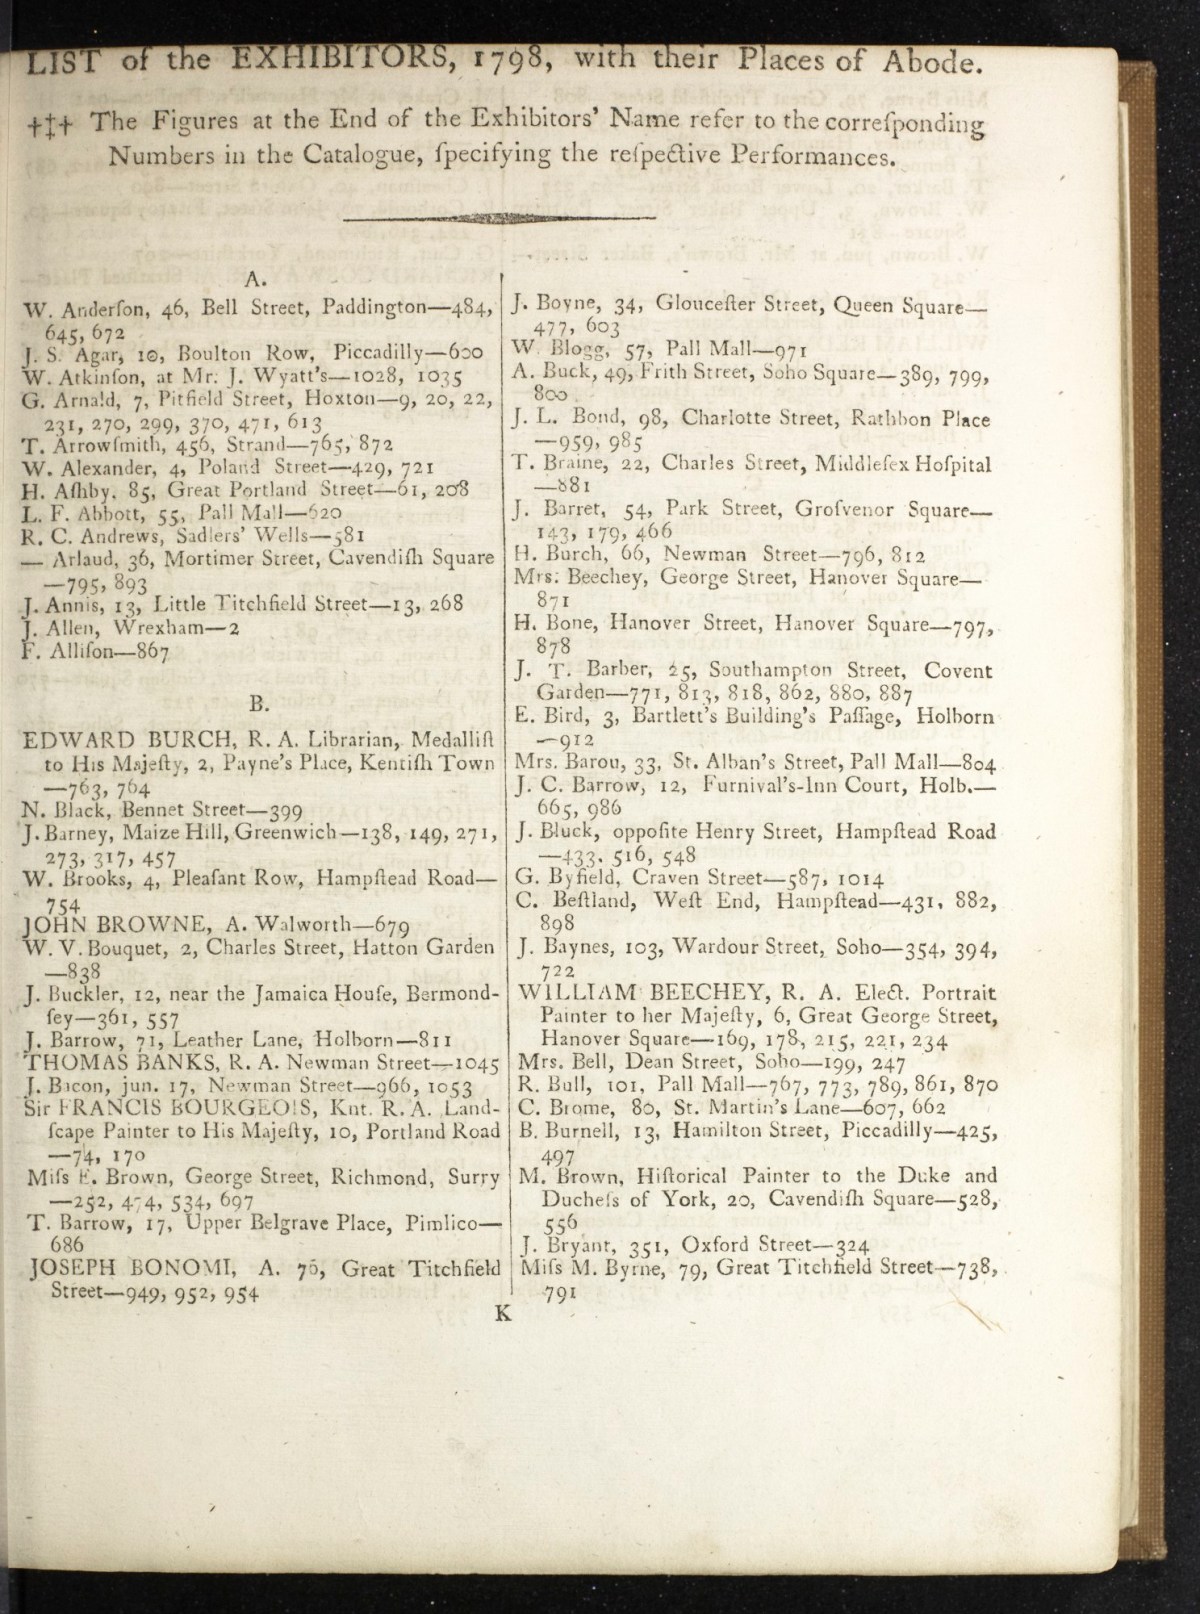 LIST of the EXHIBITORS, 1798, with their Places of Abode.
†‡† The Figures at the End of the Exhibitors' Name refer to the correſponding
Numbers in the Catalogue, ſpecifying the reſpective Performances.
A.
W. Anderſon, 46, Bell Street, Paddington—484,
645, 672
J. S. Agar, 10, Boulton Row, Piccadilly—600
W. Atkinſon, at Mr. J. Wyatt's—1028, 1035
G. Arnald, 7, Pitfield Street, Hoxton—9, 20, 22,
231, 270, 299, 370, 471, 613
T. Arrowſmith, 456, Strand—765, 872
W. Alexander, 4, Poland Street—429, 721
H. Aſhby, 85, Great Portland Street—61, 208
L. F. Abbott, 55, Pall Mall—620
R. C. Andrews, Sadlers' Wells—581
— Arlaud, 36, Mortimer Street, Cavendiſh Square
—795, 893
J. Annis, 13, Little Titchfield Street—13, 268
J. Allen, Wrexham—2
F. Alliſon—867
B.
EDWARD BURCH, R. A. Librarian, Medalliſt
to His Majeſty, 2, Payne's Place, Kentiſh Town
—763, 764
N. Black, Bennet Street—399
J. Barney, Maize Hill, Greenwich—138, 149, 271,
273, 317, 457
W. Brooks, 4, Pleaſant Row, Hampſtead Road—
754
JOHN BROWNE, A. Walworth—679
W. V. Bouquet, 2, Charles Street, Hatton Garden
—838
J. Buckler, 12, near the Jamaica Houſe, Bermond-
ſey—361, 557
J. Barrow, 71, Leather Lane, Holborn—811
THOMAS BANKS, R. A. Newman Street—1045
J. Bacon, jun. 17, Newman Street—966, 1053
Sir FRANCIS BOURGEOIS, Knt. R. A. Land-
ſcape Painter to His Majeſty, 10, Portland Road
—74, 170
Miſs E. Brown, George Street, Richmond, Surry
—252, 474, 534, 697
T. Barrow, 17, Upper Belgrave Place, Pimlico—
686
JOSEPH BONOMI, A. 76, Great Titchfield
Street—949, 952, 954
J. Boyne, 34, Glouceſter Street, Queen Square—
477, 603
W. Blogg, 57, Pall Mall—971
A. Buck, 49, Frith Street, Soho Square—389, 799,
800
J. L. Bond, 98, Charlotte Street, Rathbon Place
—959, 985
T. Braine, 22, Charles Street, Middleſex Hoſpital
—881
J. Barret, 54, Park Street, Groſvenor Square—
143, 179, 466
H. Burch, 66, Newman Street—796, 812
Mrs. Beechey, George Street, Hanover Square—
871
H. Bone, Hanover Street, Hanover Square—797,
878
J. T. Barber, 25, Southampton Street, Covent
Garden—771, 813, 818, 862, 880, 887
E. Bird, 3, Bartlett's Building's Paſſage, Holborn
—912
Mrs. Barou, 33, St. Alban's Street, Pall Mall—804
J. C. Barrow, 12, Furnival's-Inn Court, Holb.—
665, 986
J. Bluck, oppoſite Henry Street, Hampſtead Road
—433, 516, 548
G. Byfield, Craven Street—587, 1014
C. Beſtland, Weſt End, Hampſtead—431, 882,
898
J. Baynes, 103, Wardour Street, Soho—354, 394,
722
WILLIAM BEECHEY, R. A. Elect. Portrait
Painter to her Majeſty, 6, Great George Street,
Hanover Square—169, 178, 215, 221, 234
Mrs. Bell, Dean Street, Soho—199, 247
R. Bull, 101, Pall Mall—767, 773, 789, 861, 870
C. Brome, 80, St. Martin's Lane—607, 662
B. Burnell, 13, Hamilton Street, Piccadilly—425,
497
M. Brown, Hiſtorical Painter to the Duke and
Ducheſs of York, 20, Cavendiſh Square—528,
556
J. Bryant, 351, Oxford Street—324
Miſs M. Byrne, 79, Great Titchfield Street—738,
791
K